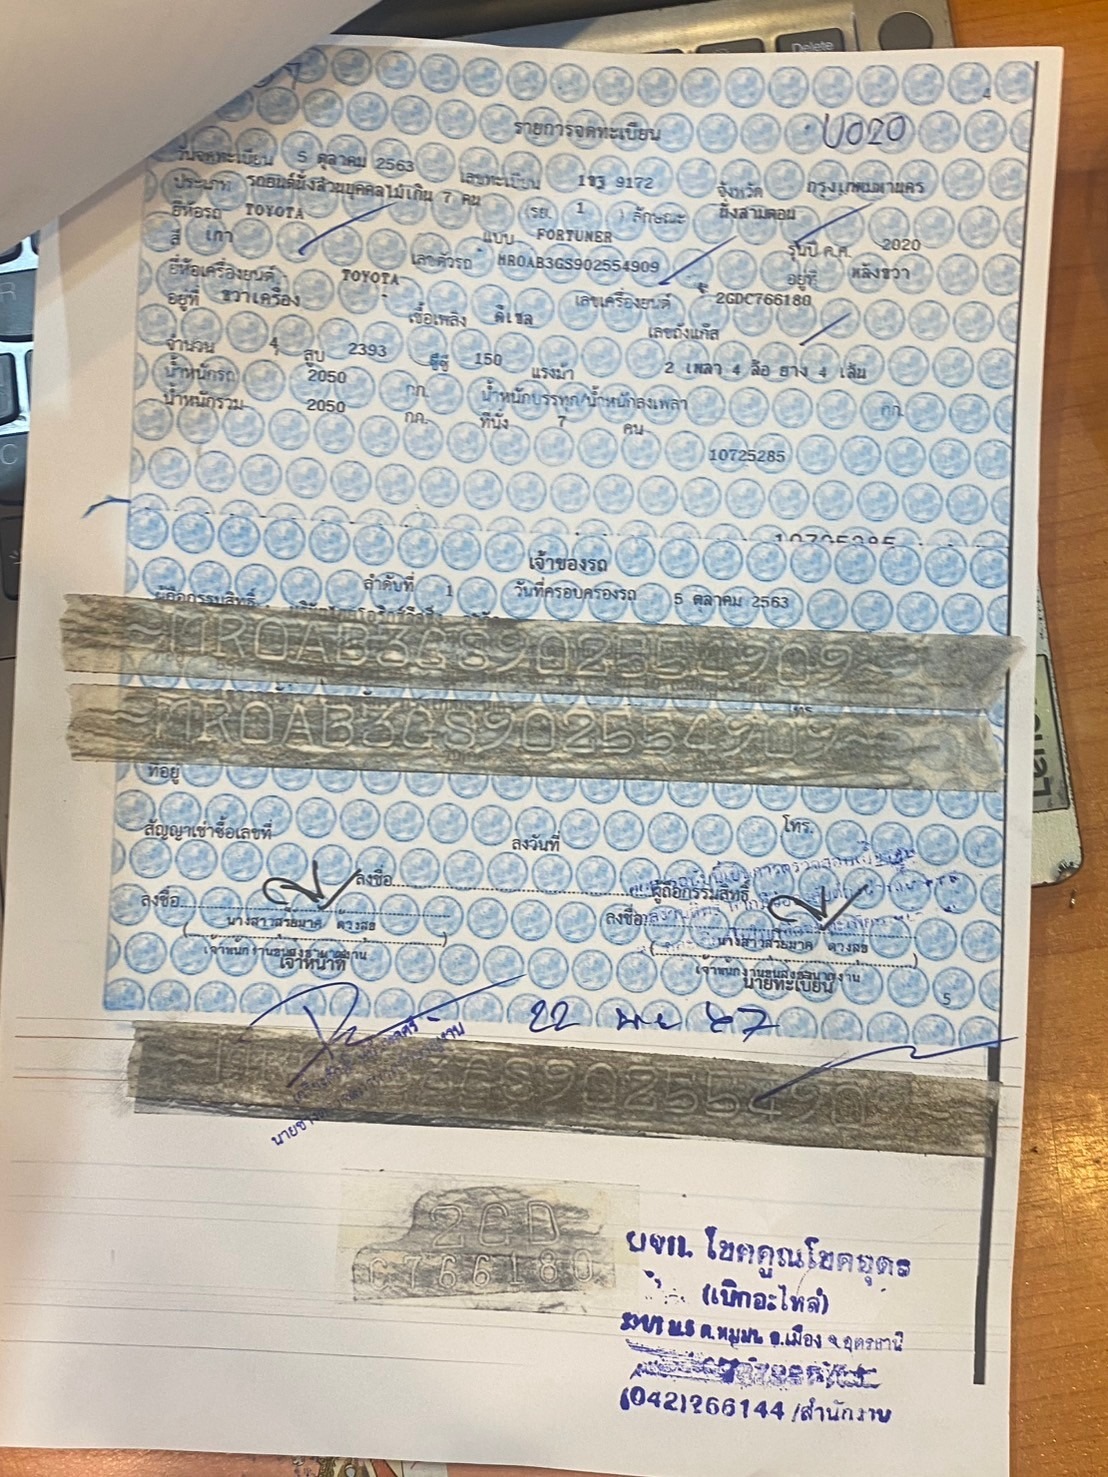 Delete
4
รายการจดทะเบียน
U020
วันจดทะเบียน 5 ตุลาคม 2563 เลขทะเบียน 9172 จังหวัด กรุงเทพมหานคร
ประเภท รถยนต์นั่งส่วนบุคคลไม่เกิน 7 คน (รย. 1 ) ลักษณะ นั่งสามตอน
ยี่ห้อรถ TOYOTA แบบ FORTUNER รุ่นปี ค.ศ. 2020
สี เทา เลขตัวรถ MR0AB3GS902554909 อยู่ที่ หลังขวา
ยี่ห้อเครื่องยนต์ TOYOTA เลขเครื่องยนต์ 2GDC766180
อยู่ที่ ขวาเครื่อง เชื้อเพลิง ดีเซล เลขถังแก๊ส
จำนวน 4 สูบ 2393 ซีซี 150 แรงม้า 2 เพลา 4 ล้อ ยาง 4 เส้น
น้ำหนักรถ 2050 กก. น้ำหนักบรรทุก/น้ำหนักลงเพลา กก.
น้ำหนักรวม 2050 กก. ที่นั่ง 7 คน
10725285
10725285
เจ้าของรถ
ลำดับที่ 1 วันที่ครอบครองรถ 5 ตุลาคม 2563
ผู้ถือกรรมสิทธิ์
~MR0AB3GS902554909~
~MR0AB3GS902554909~
ที่อยู่
โทร.
สัญญาเช่าซื้อเลขที่ ลงวันที่
ลงชื่อ ผู้ถือกรรมสิทธิ์
ลงชื่อ ลงชื่อ
เจ้าพนักงานขนส่งชำนาญงาน เจ้าพนักงานขนส่งชำนาญงาน
เจ้าหน้าที่ นายทะเบียน
5
22 พย 67
~MR0AB3GS902554909~
2GD
C766180
บจก. โชคคูณโชคอุดร
(เบิกอะไหล่)
อ.เมือง จ.อุดรธานี
(042)266144 /สำนักงาน